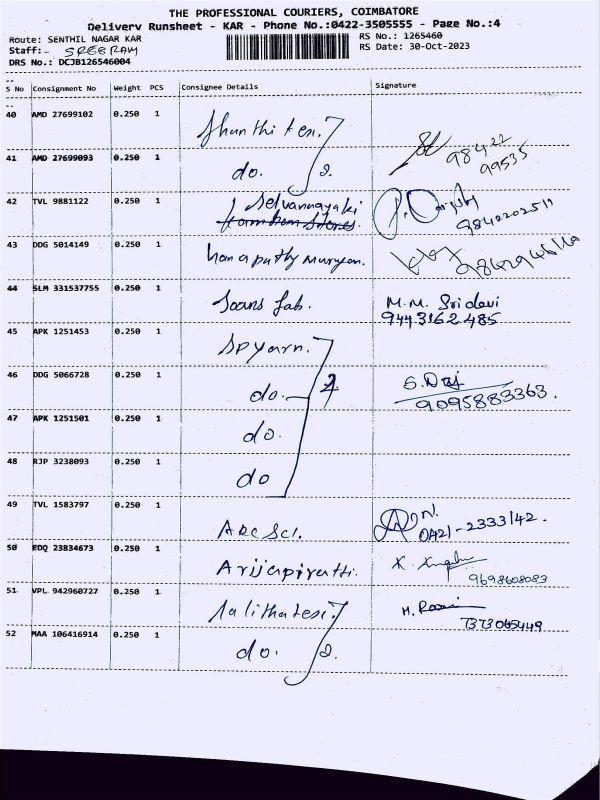 THE PROFESSIONAL COURIERS, COIMBATORE
Delivery Runsheet - KAR - Phone No.:0422-3505555 - Page No.:4
Route: SENTHIL NAGAR KAR
RS No.: 1265460
Staff:- SREERAM
RS Date: 30-Oct-2023
DRS No.: DCJB126546004
S No Consignment No Weight PCS Consignee Details Signature
40 AMD 27699102 0.250 1 Shanthi tex.
41 AMD 27699093 0.250 1 do. 2. 98422 99535
42 TVL 9881122 0.250 1 Selvannayaki 9842202511
43 DDG 5014149 0.250 1
44 SLM 331537755 0.250 1 Soans fab. M.M. Sridevi 9443162485
45 APK 1251453 0.250 1 SPyarn.
46 DDG 5066728 0.250 1 do. 9095883363.
47 APK 1251501 0.250 1 do.
48 RJP 3238093 0.250 1 do
49 TVL 1583797 0.250 1 0421-2333142.
50 EDQ 23834673 0.250 1 9698608083
51 VPL 942960727 0.250 1 7373065449
52 MAA 106416914 0.250 1 do. 2.